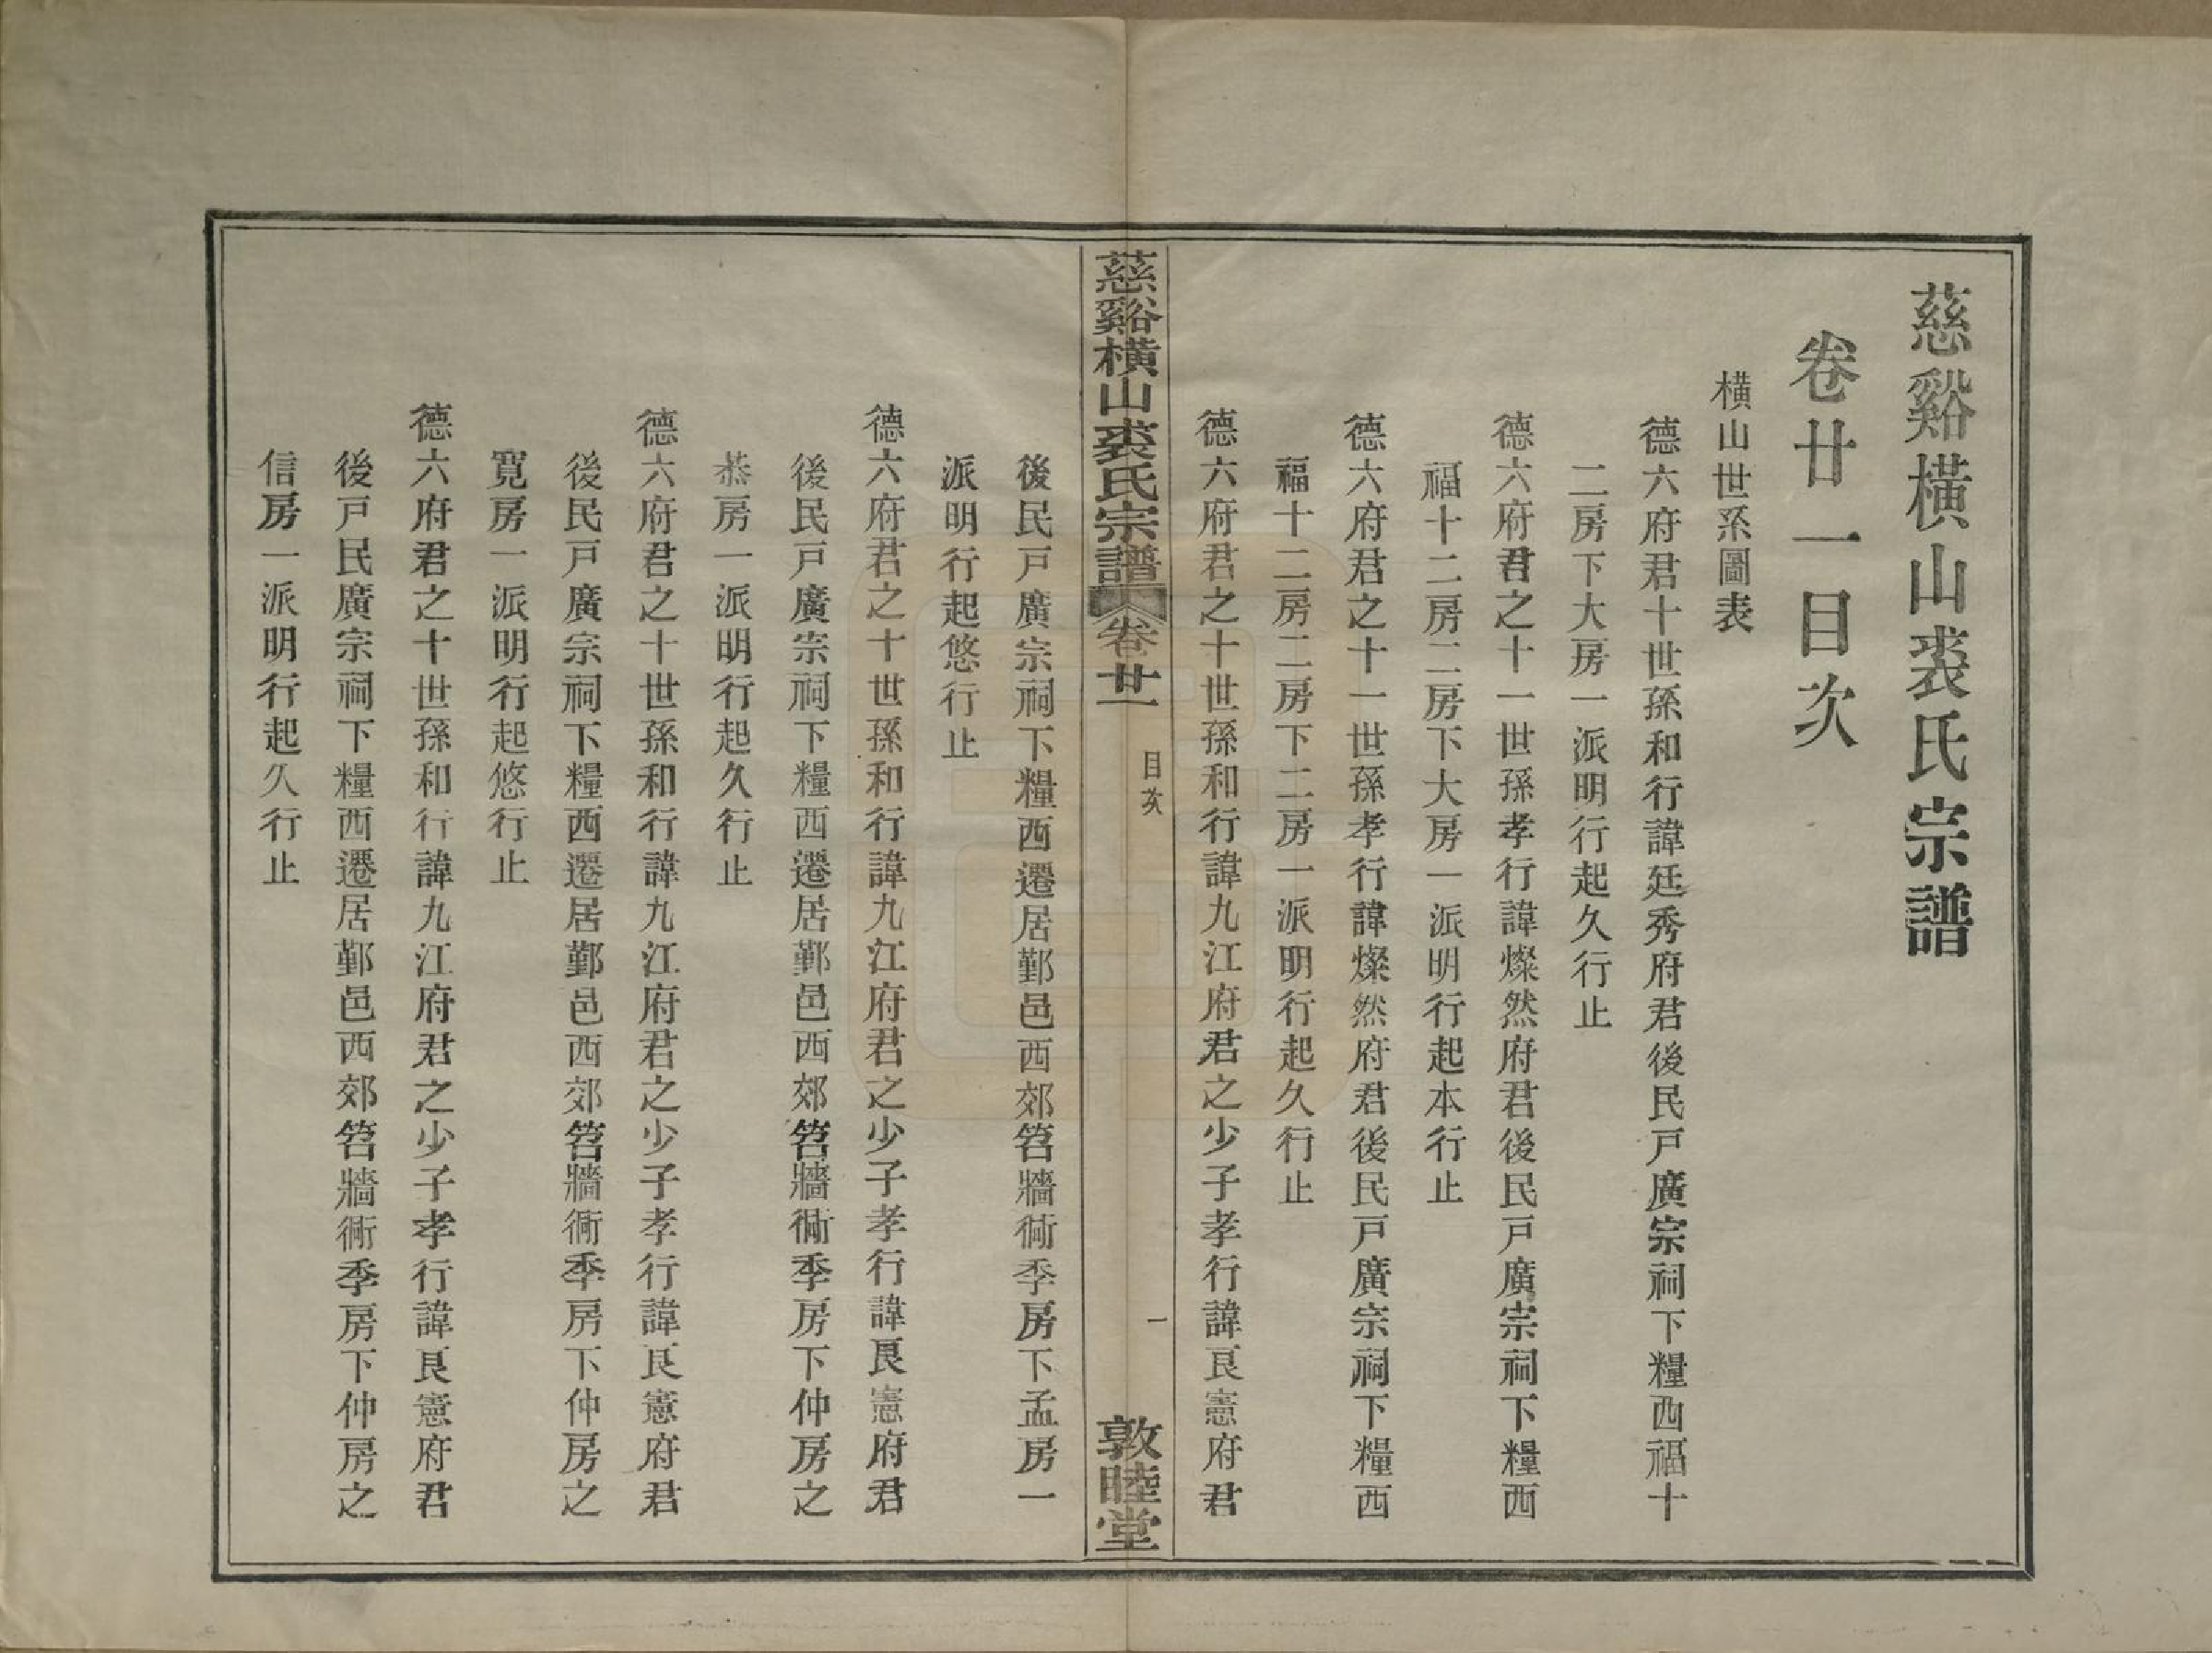 慈谿橫山裘氏宗譜
卷廿一目次
橫山世系圖表
德六府君十世孫和行諱廷秀府君後民戸廣宗祠下糧西福十
二房下大房一派明行起久行止
德六府君之十一世孫孝行諱燦然府君後民戸廣宗祠下糧西
福十二房二房下大房一派明行起本行止
德六府君之十一世孫孝行諱燦然府君後民戸廣宗祠下糧西
福十二房二房下二房一派明行起久行止
德六府君之十世孫和行諱九江府君之少子孝行諱良憲府君
慈谿橫山裘氏宗譜 卷廿一 目次 一 敦睦堂
後民戸廣宗祠下糧西遷居鄞邑西郊筲牆衕季房下孟房一
派明行起悠行止
德六府君之十世孫和行諱九江府君之少子孝行諱良憲府君
後民戸廣宗祠下糧西遷居鄞邑西郊筲牆衕季房下仲房之
恭房一派明行起久行止
德六府君之十世孫和行諱九江府君之少子孝行諱良憲府君
後民戸廣宗祠下糧西遷居鄞邑西郊筲牆衕季房下仲房之
寬房一派明行起悠行止
德六府君之十世孫和行諱九江府君之少子孝行諱良憲府君
後戸民廣宗祠下糧西遷居鄞邑西郊筲牆衕季房下仲房之
信房一派明行起久行止